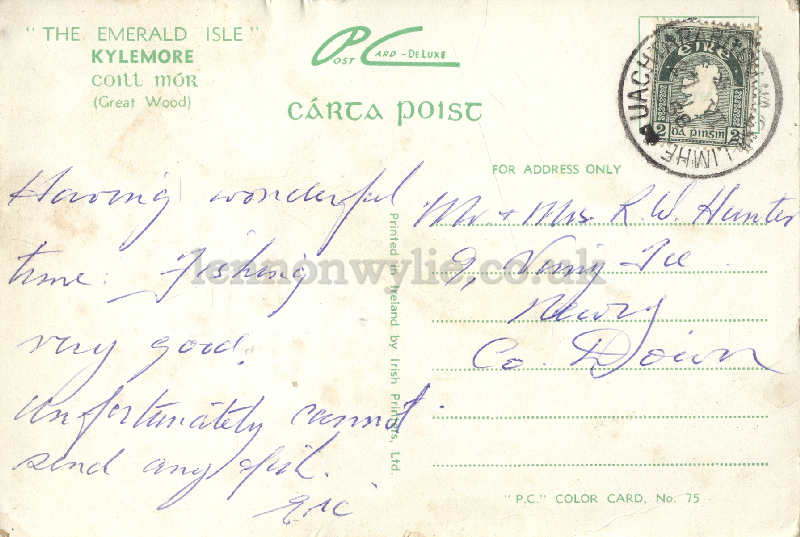 "THE EMERALD ISLE"
KYLEMORE
COILL MÓR
(Great Wood)
POST CARD - DELUXE
CÁRTA POIST
ÉIRE
2 DÁ PINGIN 2
UACHTAR
FOR ADDRESS ONLY
Having wonderful
time. Fishing
very good.
Unfortunately cannot
send any fish.
Eric
Printed in Ireland by Irish Printers, Ltd.
Mr + Mrs R. W. Hunter
9, Vimy Tce
Newry
Co. Down
"P.C." COLOR CARD, No. 75
lennonwylie.co.uk